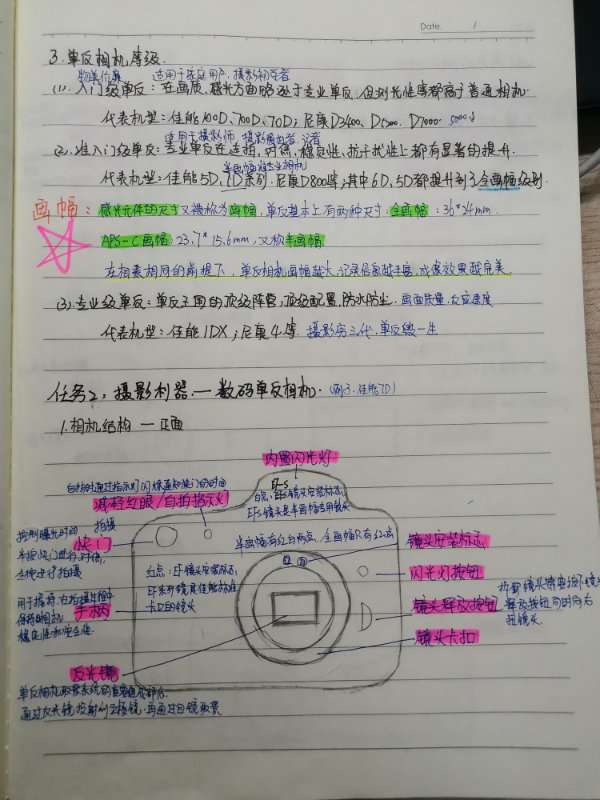 Date. /
3.单反相机等级.
物美价廉 适用于家庭用户,摄影初学者
(1).入门级单反:在画质、感光方面略逊于专业单反,但对光性等都高于普通相机.
代表机型:佳能100D、700D、70D;尼康D3400、D7000
适用于摄影师 摄影爱好者 记者
(2).准入门级单反:专业单反在连拍、对焦、稳定性、抗干扰性上都有显著的提升.
半画幅准专业相机
代表机型:佳能5D、7D系列.尼康D800等,其中6D、5D都提升到了全画幅级别
画幅:感光元件的尺寸又被称为画幅,单反基本上有两种尺寸:全画幅:36*24mm.
APS-C画幅:23.7*15.6mm,又称半画幅
在相素相同的前提下,单反相机画幅越大,记录信息越丰富,成像效果越完美
(3).专业级单反:单反王国的顶级阵营,顶级配置,防水防尘.画面质量,反应速度
代表机型:佳能1DX;尼康4等 摄影穷三代,单反毁一生
任务2:摄影利器—数码单反相机.(例:佳能7D)
1.相机结构 — 正面
内置闪光灯
自拍时通过指示灯闪烁通知快门的时间
减轻红眼/自拍指示灯
EF-S
白点:EF-s镜头安装标志,
EF-s镜头是半画幅专用镜头
控制曝光时间
半按快门进行对焦,
全按进行拍摄
快门
半画幅有红白两点,全画幅只有红点
镜头安装标志
红点:EF镜头安装标志,
EF系列镜头是佳能标准
卡口的镜头
闪光灯按钮
用于握持,在拍摄过程中
保持相机
稳定性和安全性.
手柄
镜头释放按钮
拆卸镜头需要按下镜头
释放按钮同时向右
扭镜头
镜头卡扣
反光镜
单反相机取景系统的重要组成部分.
通过反光镜投射到五棱镜,再通过目镜取景